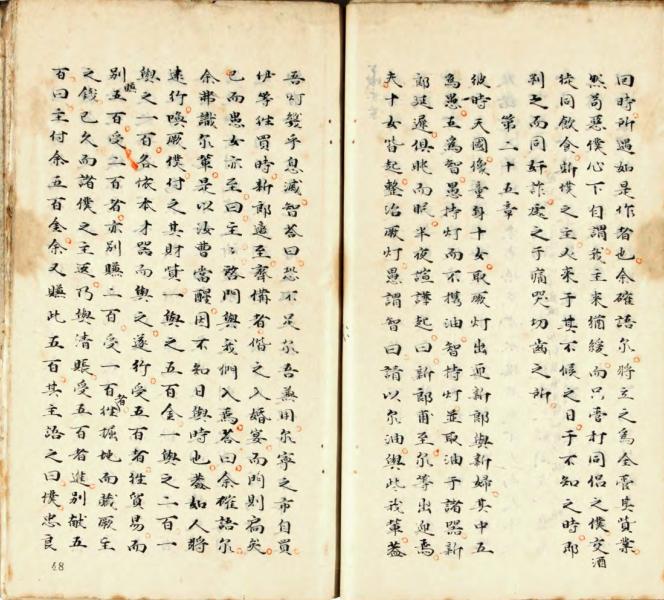 回時所遇如是作者也余確語尔將立之爲全管其貨業
然茍惡僕心下自謂我主來猶緩而只管打同侶之僕交酒
徒同飲食斯僕之主人來于其不候之日于不知之時即
別之而同奸詐處之于痛哭切齒之所
第二十五章
彼時天國儗童身十女取厥灯出迎新郎與新婦其中五
爲愚五爲智愚持灯而不携油智持灯並取油于諸器新
郎延遲俱眊而眠半夜諠譁起曰新郎甫至尔等出迎焉
夫十女皆起整治厥灯愚謂智曰請以尔油與此我軰葢
吾灯幾乎息滅智荅曰恐不足尔吾兼用尔寧之市自買
伊等徃買時新郎適至齊備者偕之入婚宴而門則扄矣
已而愚女亦至曰主主啓門與我們入焉荅曰余確語尔
余弗識尔軰是以汝曹當醒因不知日與時也葢如人將
遠行喚厥僕付之其財貨一與之五百金一與之二百一
與之一百各依本才器而與之遂行受五百者徃貿易而
別賺五百受二百者亦別賺二百受一百者徃掘地而藏厥主
之錢已久而諸僕之主返乃與清賬受五百者進別献五
百曰主付余五百金余又賺此五百其主語之曰僕忠良
48